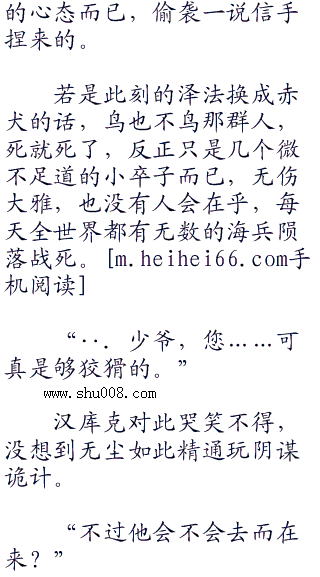 的心态而已，偷袭一说信手
捏来的。
若是此刻的泽法换成赤
犬的话，鸟也不鸟那群人，
死就死了，反正只是几个微
不足道的小卒子而已，无伤
大雅，也没有人会在乎，每
天全世界都有无数的海兵陨
落战死。[m.heihei66.com手
机阅读]
“··．少爷，您……可
真是够狡猾的。”
www.shu008.com
汉库克对此哭笑不得，
没想到无尘如此精通玩阴谋
诡计。
“不过他会不会去而在
来？”